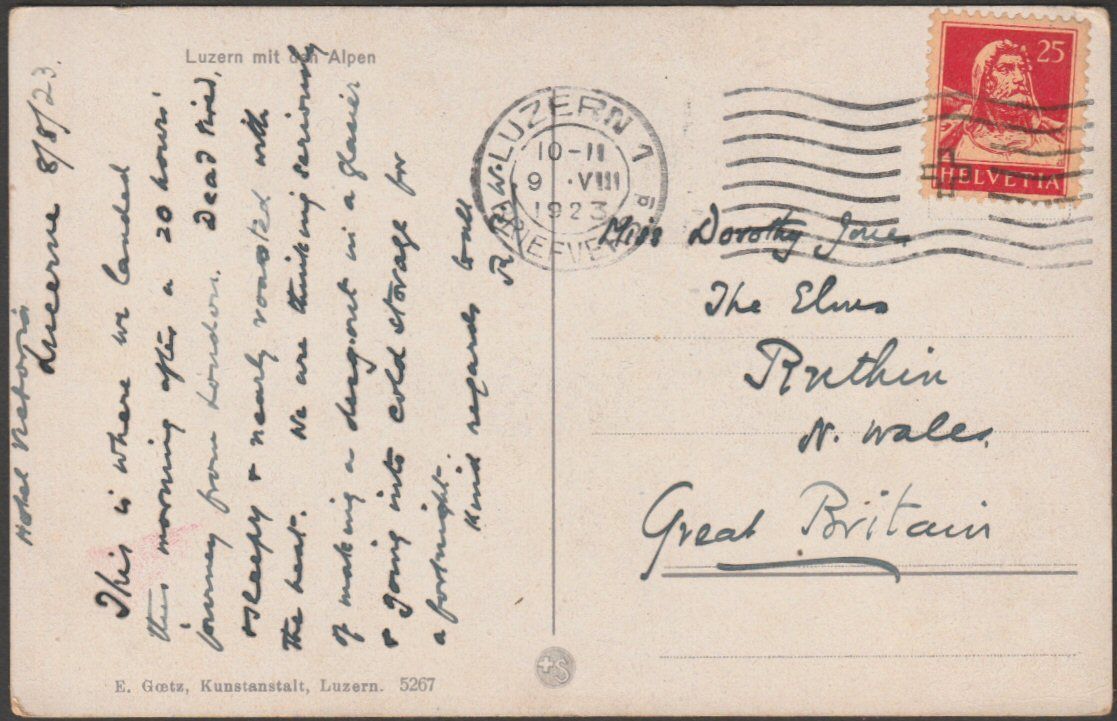 Luzern mit den Alpen
Hotel Victoria
Lucerne 8/8/23.
This is where we landed
this morning after a 20 hours'
journey from London. Dead tired,
sleepy & nearly roasted with
the heat. We are thinking seriously
of making a dug-out in a glacier
& going into cold storage for
a fortnight.
Kind regards to all
LUZERN 1
10-11
9.VIII
1923
BRIEFVERS
25
HELVETIA
Miss Dorothy Jones
The Elms
Ruthin
N. Wales.
Great Britain
E. Gœtz, Kunstanstalt, Luzern. 5267
+S